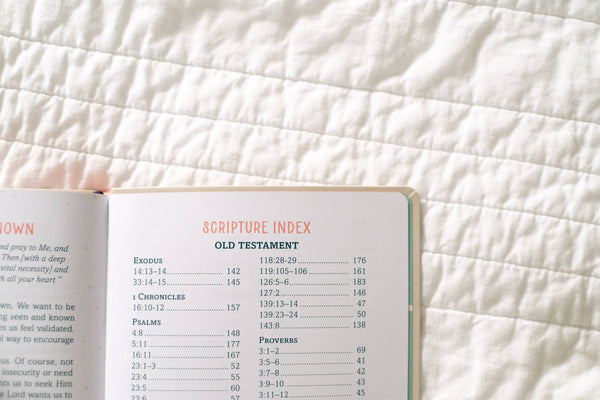 NOWN
nd pray to Me, and
Then [with a deep
vital necessity] and
th all your heart."
own. We want to be
ng seen and known
es us feel validated.
ul way to encourage
us. Of course, not
insecurity or need
nts us to seek Him
e Lord wants us to
SCRIPTURE INDEX
OLD TESTAMENT
EXODUS
14:13–14 142
33:14–15 145
1 CHRONICLES
16:10–12 157
PSALMS
4:8 148
5:11 177
16:11 167
23:1–3 52
23:4 55
23:5 60
23:6
118:28-29 176
119:105–106 161
126:5–6 183
127:2 146
139:13–14 47
139:23–24 50
143:8 138
PROVERBS
3:1–2 69
3:5–6 41
3:7–8 42
3:9–10 43
3:11–12 45